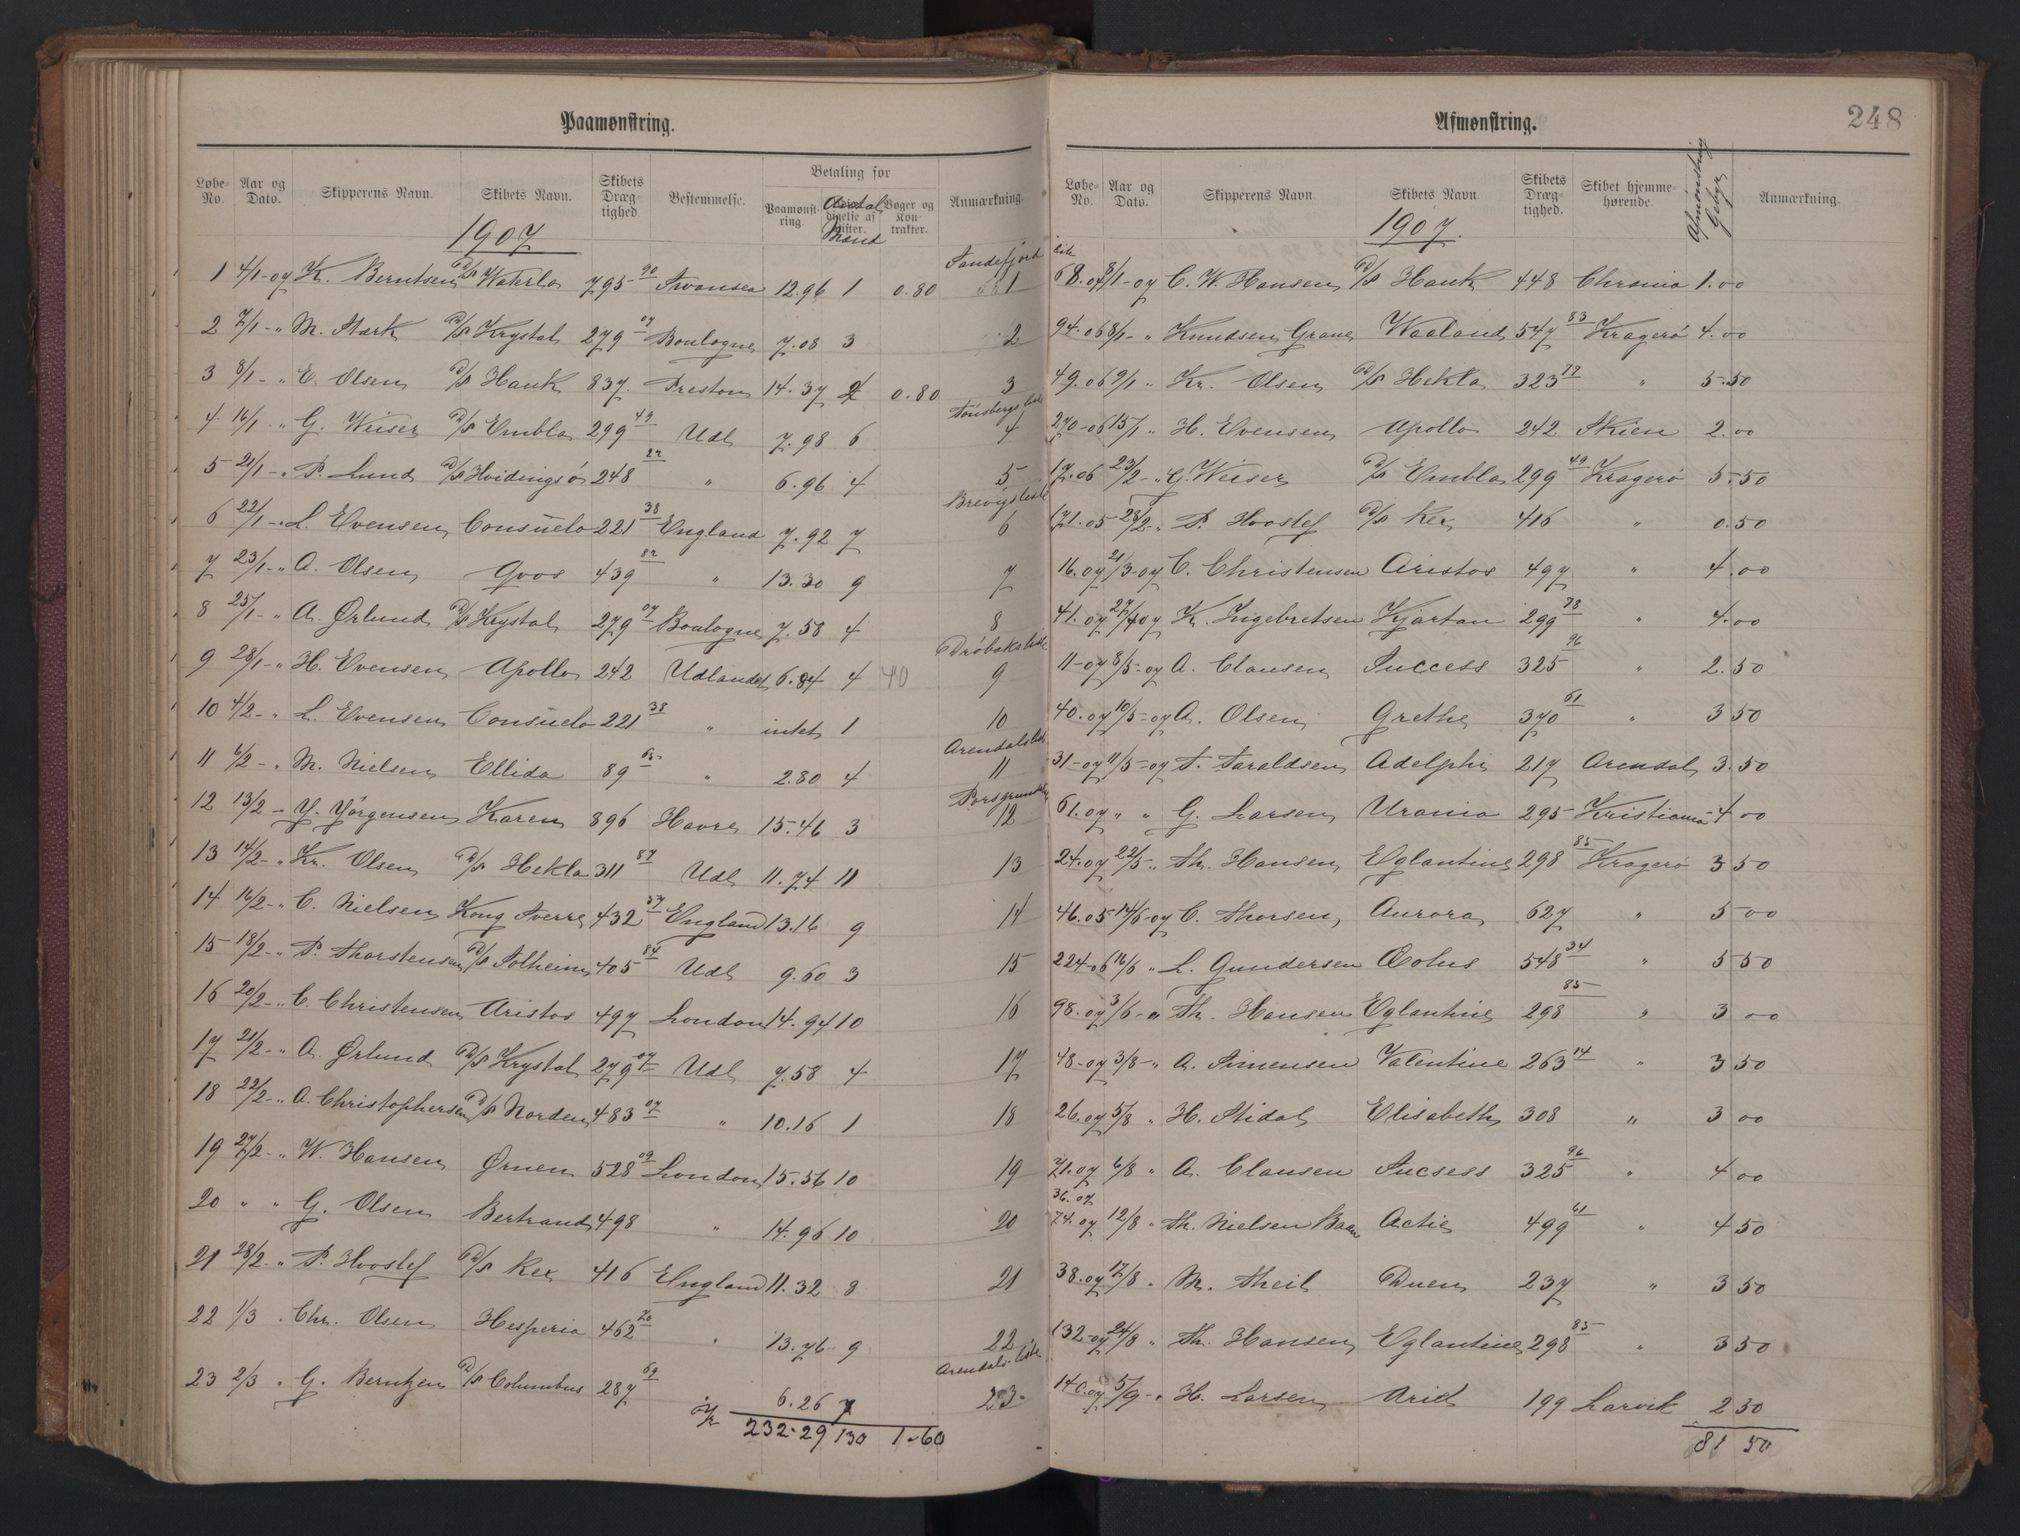 Paamønstring.
Løbe-No. Aar og Dato. Skipperens Navn. Skibets Navn. Skibets Dræg-tighed. Bestemmelse. Betaling for Paamønst-ring. Antal Mand Bøger og Kon-trakter. Anmærkning.
1907
1 4/1-07 K. Berntsen D/S Waterlo 795 90 Swansea 12.96 1 0.80 Sandefjord liste 1
2 7/1- " M. Stærk D/S Krystal 279 07 Boulogne 7.08 3 2
3 8/1- " E. Olsen D/S Hauk 837. Preston 14.37 2 0.80 3
4 16/1 " G. Weiser D/S Embla 299 49 Udl 7.98 6 Tønsbergs liste 4
5 21/1- " P. Lund D/S Hvidingsø 248 22 " 6.96 4 5
6 22/1- " L. Evensen Consuelo 221 38 England 7.92 7 Brevigs liste 6
7 23/1- " A. Olsen Gvos 439 82 " 13.30 9 7
8 25/1- " A. Ørlund D/S Krystal 279 07 Boulogne 7.58 4 8
9 28/1- " H. Evensen Apollo 242 Udlandet 6.84 4 40 Drøbaks liste 9
10 4/2- " L. Evensen Consuelo 221 38 " intet 1 10
11 6/2- " M. Nielsen Ellida 89 " 2.80 4 Arendals liste 11
12 13/2- Y. Yørgensen Karen 896 Havre 15.46 3 Porsgrund 12
13 14/2- " Kr. Olsen D/S Hekla 311 87 Udl 11.74 11 13
14 16/2- " C. Nielsen Kong Sverre 432 37 England 13.16 9 14
15 18/2- " P. Thorstensen D/S Solheim 405 84 Udl 9.60 3 15
16 20/2- " C. Christensen Aristos 497 London 14.94 10 16
17 21/2- " A. Ørlund D/S Krystal 279 07 Udl 7.58 4 17
18 22/2- " A. Christophersen D/S Norden 483 07 " 10.16 1 18
19 27/2- " W. Hansen Ørnen 528 09 London 15.56 10 19
20 " " G. Olsen Bertrand 498 " 14.96 10 20
21 28/2- " P. Hvoslef D/S Rex 416 England 11.32 8 21
22 1/3 " Chr. Olsen Hesperia 462 20 " 13.76 9 22
23 2/3 " G. Berntzen D/S Columbus 287 69 6.26 7 Arendals liste 23
232.29 130 1.60
Afmønstring. 248
Løbe-No. Aar og Dato. Skipperens Navn. Skibets Navn. Skibets Dræg-tighed. Skibet hjemme-hørende. Afmønstring Gebyr Anmærkning.
1907.
68.07 8/1-07 C. W. Hansen D/S Hauk 448 Chrania 1.00
94.06 8/1- " Knudsen Grane Waaland 547 83 Kragerø 4.00
49.06 9/1 " Kr. Olsen D/S Hekla 323 77 " 5.50
270-06 15/1 " H. Evensen Apollo 242 Skien 2.00
17.06 23/2- " G. Weiser D/S Embla 299 49 Kragerø 5.50
171.05 28/2- " P. Hvoslef D/S Rex 416 " 0.50
16.07 21/3-07 C. Christensen Aristos 497 " 4.00
41.07 27/4 07 K. Ingebretsen Kjartan 299 78 " 4.00
11-07 8/5-07 A. Clausen Success 325 96 " 2.50
40.07 10/5-07 A. Olsen Grethe 370 61 " 3 50
31-07 11/5-07 T. Taraldsen Adelphi 217 Arendal 3.50
61.07 " " G. Larsen Urania 295 Kristiania 4 00
24.07 22/5- " Th. Hansen Eglantine 298 85 Kragerø 3 50
46.05 14/6-07 C. Thorsen Aurora 627 " 5 00
224-06 16/6 " L. Gundersen Æolus 548 34 " 5 50
98.07 3/6- " Th. Hansen Eglantine 298 85 " 3 00
48-07 3/8- " A. Simensen Valentine 263 14 " 3 50
26.07 5/8 " H. Stidal Elisabeth 308 " 3 00
71.07 6/8 " A. Clausen Sucsess 325 96 " 4 00
36.07
74.07 12/8 " Th. Nielsen Baar Activ 499 61 " 4 50
38.07 17/8 " M. Theil Duen 237 " 3 50
132-07 24/8 " Th. Hansen Eglantine 298 85 " 3 50
140.07 5/9- " H. Larsen Arid 199 Larvik 2 50
81 50